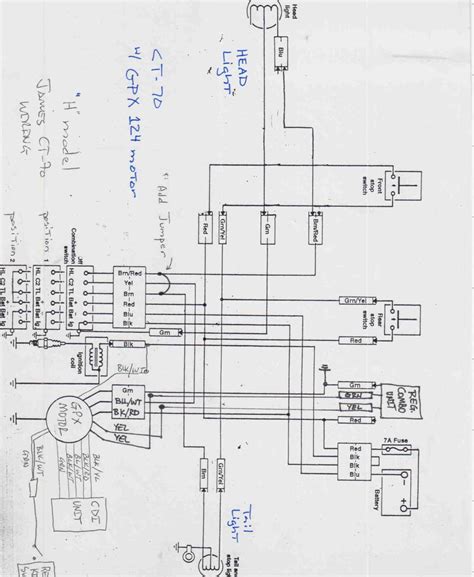 Head
light
Blu
HEAD
Light
CT-70
W/ GPX 124 MOTOR
"H" model
JAMES CT-70
WIRING
Front
stop
switch
Red
Grn/Yel
Grn
Brn/Red
"Add Jumper"
Off
Combination
switch
position 1
position 2
HL C2 TL Bat Ig
HL C2 TL Bat Ig
Brn/Red
Yel
Brn
Red
Blu
Blk
Grn
Blk
Ignition
coil
BLK/WTO
Grn/Yel
Rear
stop
switch
Red
GPX
MOTOR
Grn
BLU/WT
BK/RD
YEL
YEL
Grn
GRN
YEL
REG.
COMBO
UNIT
Red
Blk
Blk
Blu
7A Fuse
Battery
BLK/WT
GRN
BLK/YL
BLU/WT
GRN
CDI
UNIT
Brn
Grn/Yel
Tail
Light
Tail and
stop light